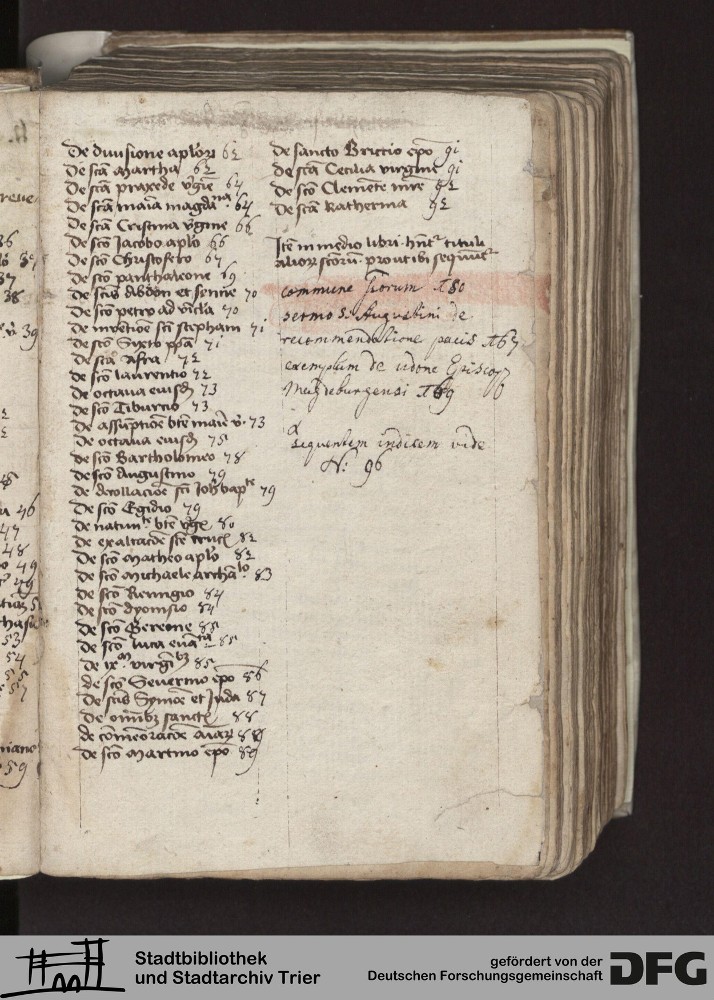 De diuisione aplorum 62
De sca Martha 62
De sca praxede v̄gīe 64
De sca maia magdana 64
De sca Cristina v̄gine 66
De sco Jacobo aplo 66
De sco Christofero 67
De sco panthaleone 69
De scis Abdon et sennē 70
De sco petro ad vīcla 70
De īuētioē sci stephani 71
De sco Sixto ppa 71
De sca Afra 72
De sco laurentio 72
De octaua eiusd 73
De sco Tiburtio 73
De assūptiōe bte maie v. 73
De octaua eiusd 75
De sco Bartholomeo 78
De sco Augustino 79
De decollacioē sci Joh bapte 79
De sco Egidio 79
De natiuite bte v̄gis 80
De exaltacōe scē crucis 82
De sco Matheo aplo 82
De sco Michaele archālo 83
De sco Remigio 84
De sco dyonisio 84
De sco Gereone 85
De sco luca euāta 85
De ixm virgibȝ 85
de sco Seuerino epo 86
De scis Symōe et Juda 87
De omībȝ sanctis 88
de cōmēoracōe aīarum 88
De sco Martino epo 89
De sancto Brictio epo 91
De sca Cecilia virgine 91
De sco Clemēte mre 92
De sca Katherina 92
Itē in medio libri hntr tituli
aliorum scorum prout ibi sequūtr
commune Storum 180
sermo s. Augustini de
recommendatione pacis 167
exemplum de udone Episcop
Magdeburgensi 169
sequentem indicem vide
N: 96
Stadtbibliothek
und Stadtarchiv Trier
gefördert von der
Deutschen Forschungsgemeinschaft
DFG